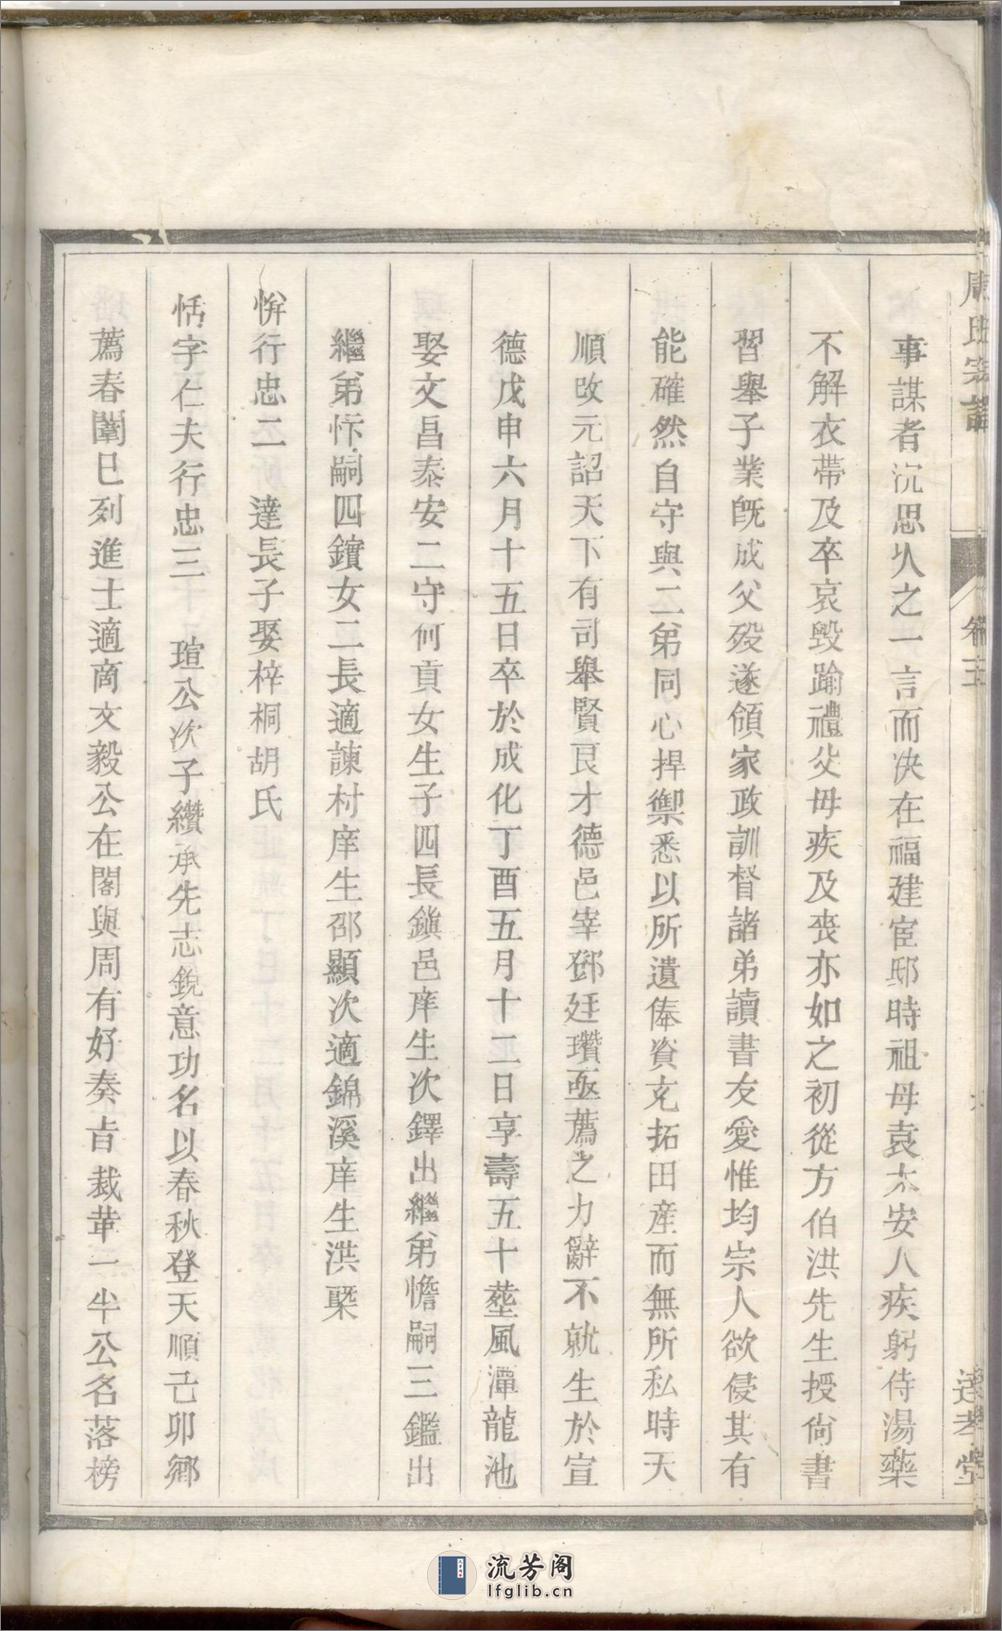 周氏宗譜
卷
達孝堂
事謀者沉思久之一言而決在福建宦邸時祖母袁太安人疾躬侍湯藥
不解衣帶及卒哀毀踰禮父母疾及喪亦如之初從方伯洪先生授尚書
習舉子業旣成父殁遂領家政訓督諸弟讀書友愛惟均宗人欲侵其有
能確然自守與二弟同心捍禦悉以所遺俸資充拓田產而無所私時天
順改元詔天下有司舉賢良才德邑宰鄧廷瓚亟薦之力辭不就生於宣
德戊申六月十五日卒於成化丁酉五月十二日享壽五十塟風潭龍池
娶文昌泰安二守何貢女生子四長鎭邑庠生次鐸出繼弟憺嗣三鑑出
繼弟忭嗣四鑌女二長適諫村庠生邵顯次適錦溪庠生洪槩
恲行忠二 達長子娶梓桐胡氏
恬字仁夫行忠三 瑄公次子纘承先志銳意功名以春秋登天順己卯鄉
薦春闈已列進士適商文毅公在閣與周有好奏旨裁革一半公名落榜
流芳阁
lfglib.cn